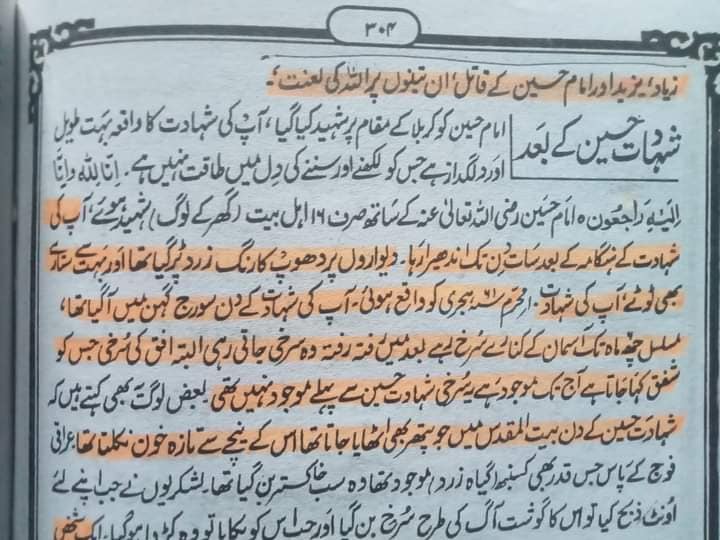 ۳۰۴
زیاد، یزید اور امام حسین کے قاتل، ان تینوں پر اللہ کی لعنت،
شہادت حسین کے بعد
امام حسین کو کربلا کے مقام پر شہید کیا گیا، آپ کی شہادت کا واقعہ بہت طویل
اور دلگداز ہے جس کو لکھنے اور سننے کی دل میں طاقت نہیں ہے۔ انا للہ وانا
الیہ راجعون ہ امام حسین رضی اللہ تعالیٰ عنہ کے ساتھ صرف ۱۶ اہل بیت (گھر کے لوگ) شہید ہوئے، آپ کی
شہادت کے ہنگامہ کے بعد سات دن تک اندھیرا رہا۔ دیواروں پر دھوپ کا رنگ زرد پڑ گیا تھا اور بہت سے ستارے
بھی ٹوٹے، آپ کی شہادت ۱۰ محرم ۶۱ ہجری کو واقع ہوئی۔ آپ کی شہادت کے دن سورج گہن میں آگیا تھا،
مسلسل چھ ماہ تک آسمان کے کنارے سرخ رہے بعد میں رفتہ رفتہ وہ سرخی جاتی رہی البتہ افق کی سرخی جس کو
شفق کہا جاتا ہے آج تک موجود ہے یہ سرخی شہادت حسین سے پہلے موجود نہیں تھی بعض لوگ یہ بھی کہتے ہیں کہ
شہادت حسین کے دن بیت المقدس میں جو پتھر بھی اٹھایا جاتا تھا اس کے نیچے سے تازہ خون نکلتا تھا عراقی
فوج کے پاس جس قدر بھی کسنبھ (گیاہ زرد) موجود تھا وہ سب خاکستر بن گیا تھا۔ لشکریوں نے جب اپنے لئے
اونٹ ذبح کیا تو اس کا گوشت آگ کی طرح سرخ بن گیا اور جب اس کو پکایا تو وہ کڑوا ہو گیا۔ ایک شخص